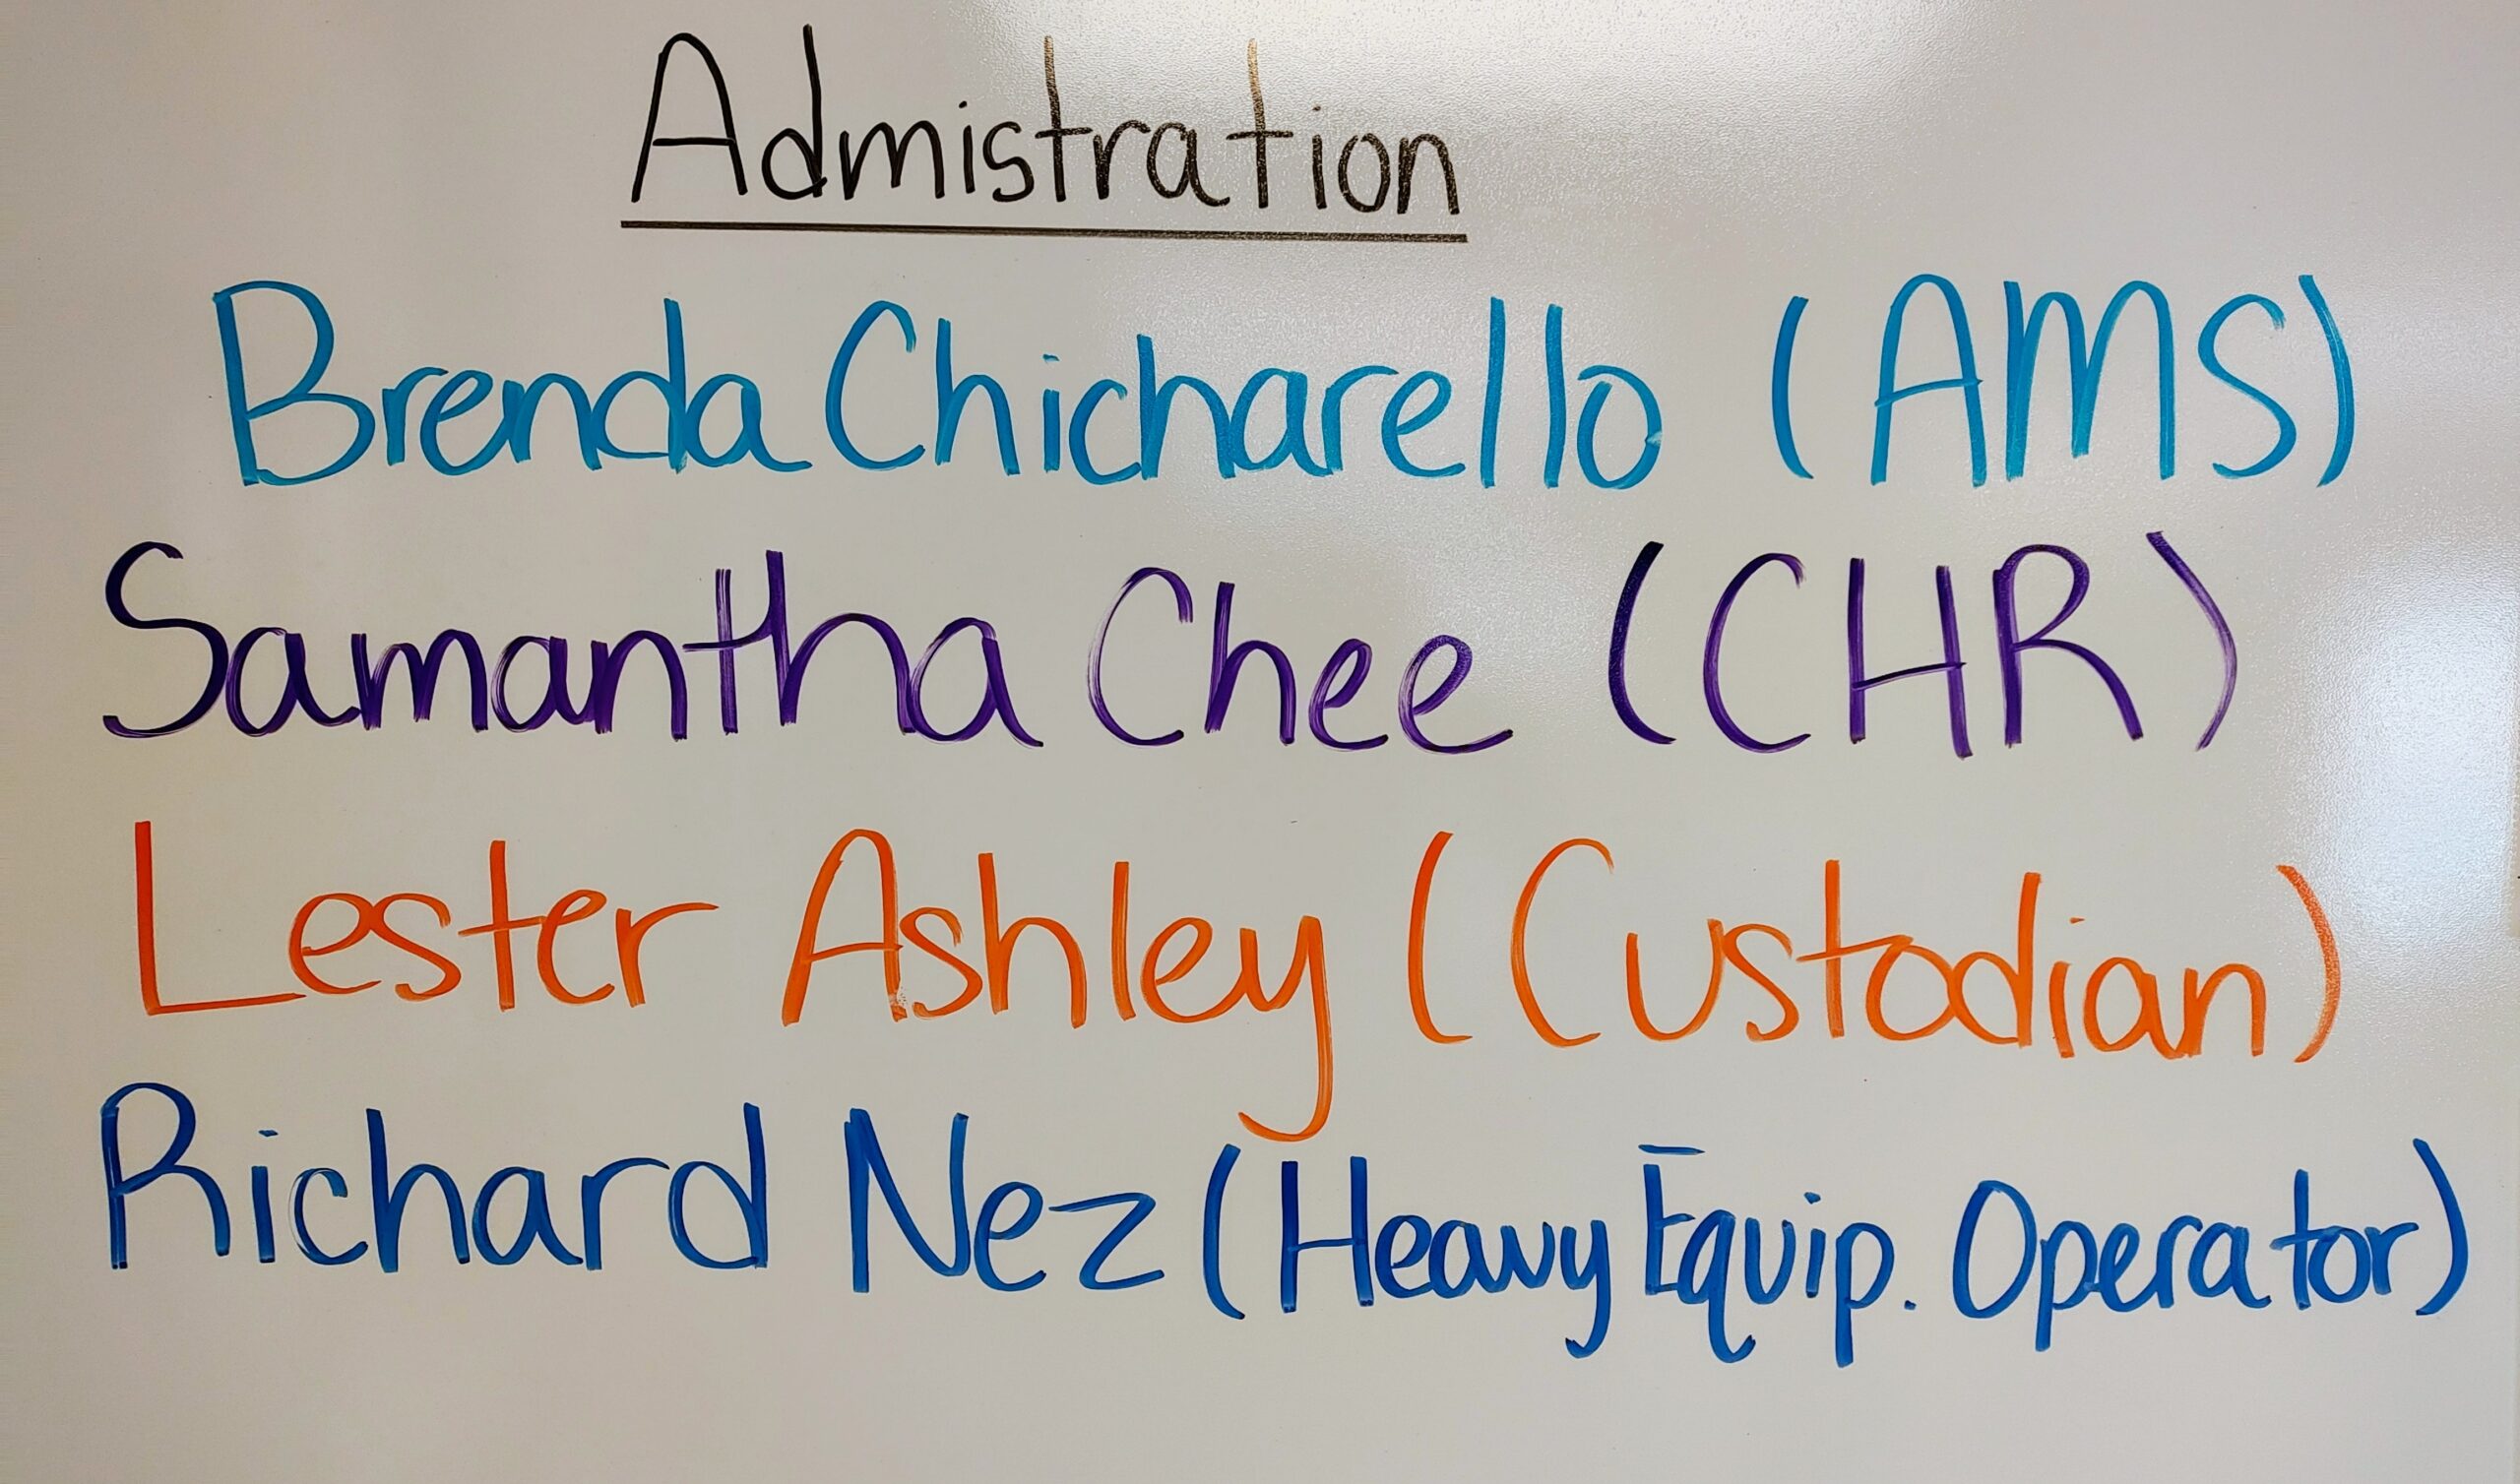 Admistration
Brenda Chicharello (AMS)
Samantha Chee (CHR)
Lester Ashley (Custodian)
Richard Nez (Heavy Equip. Operator)